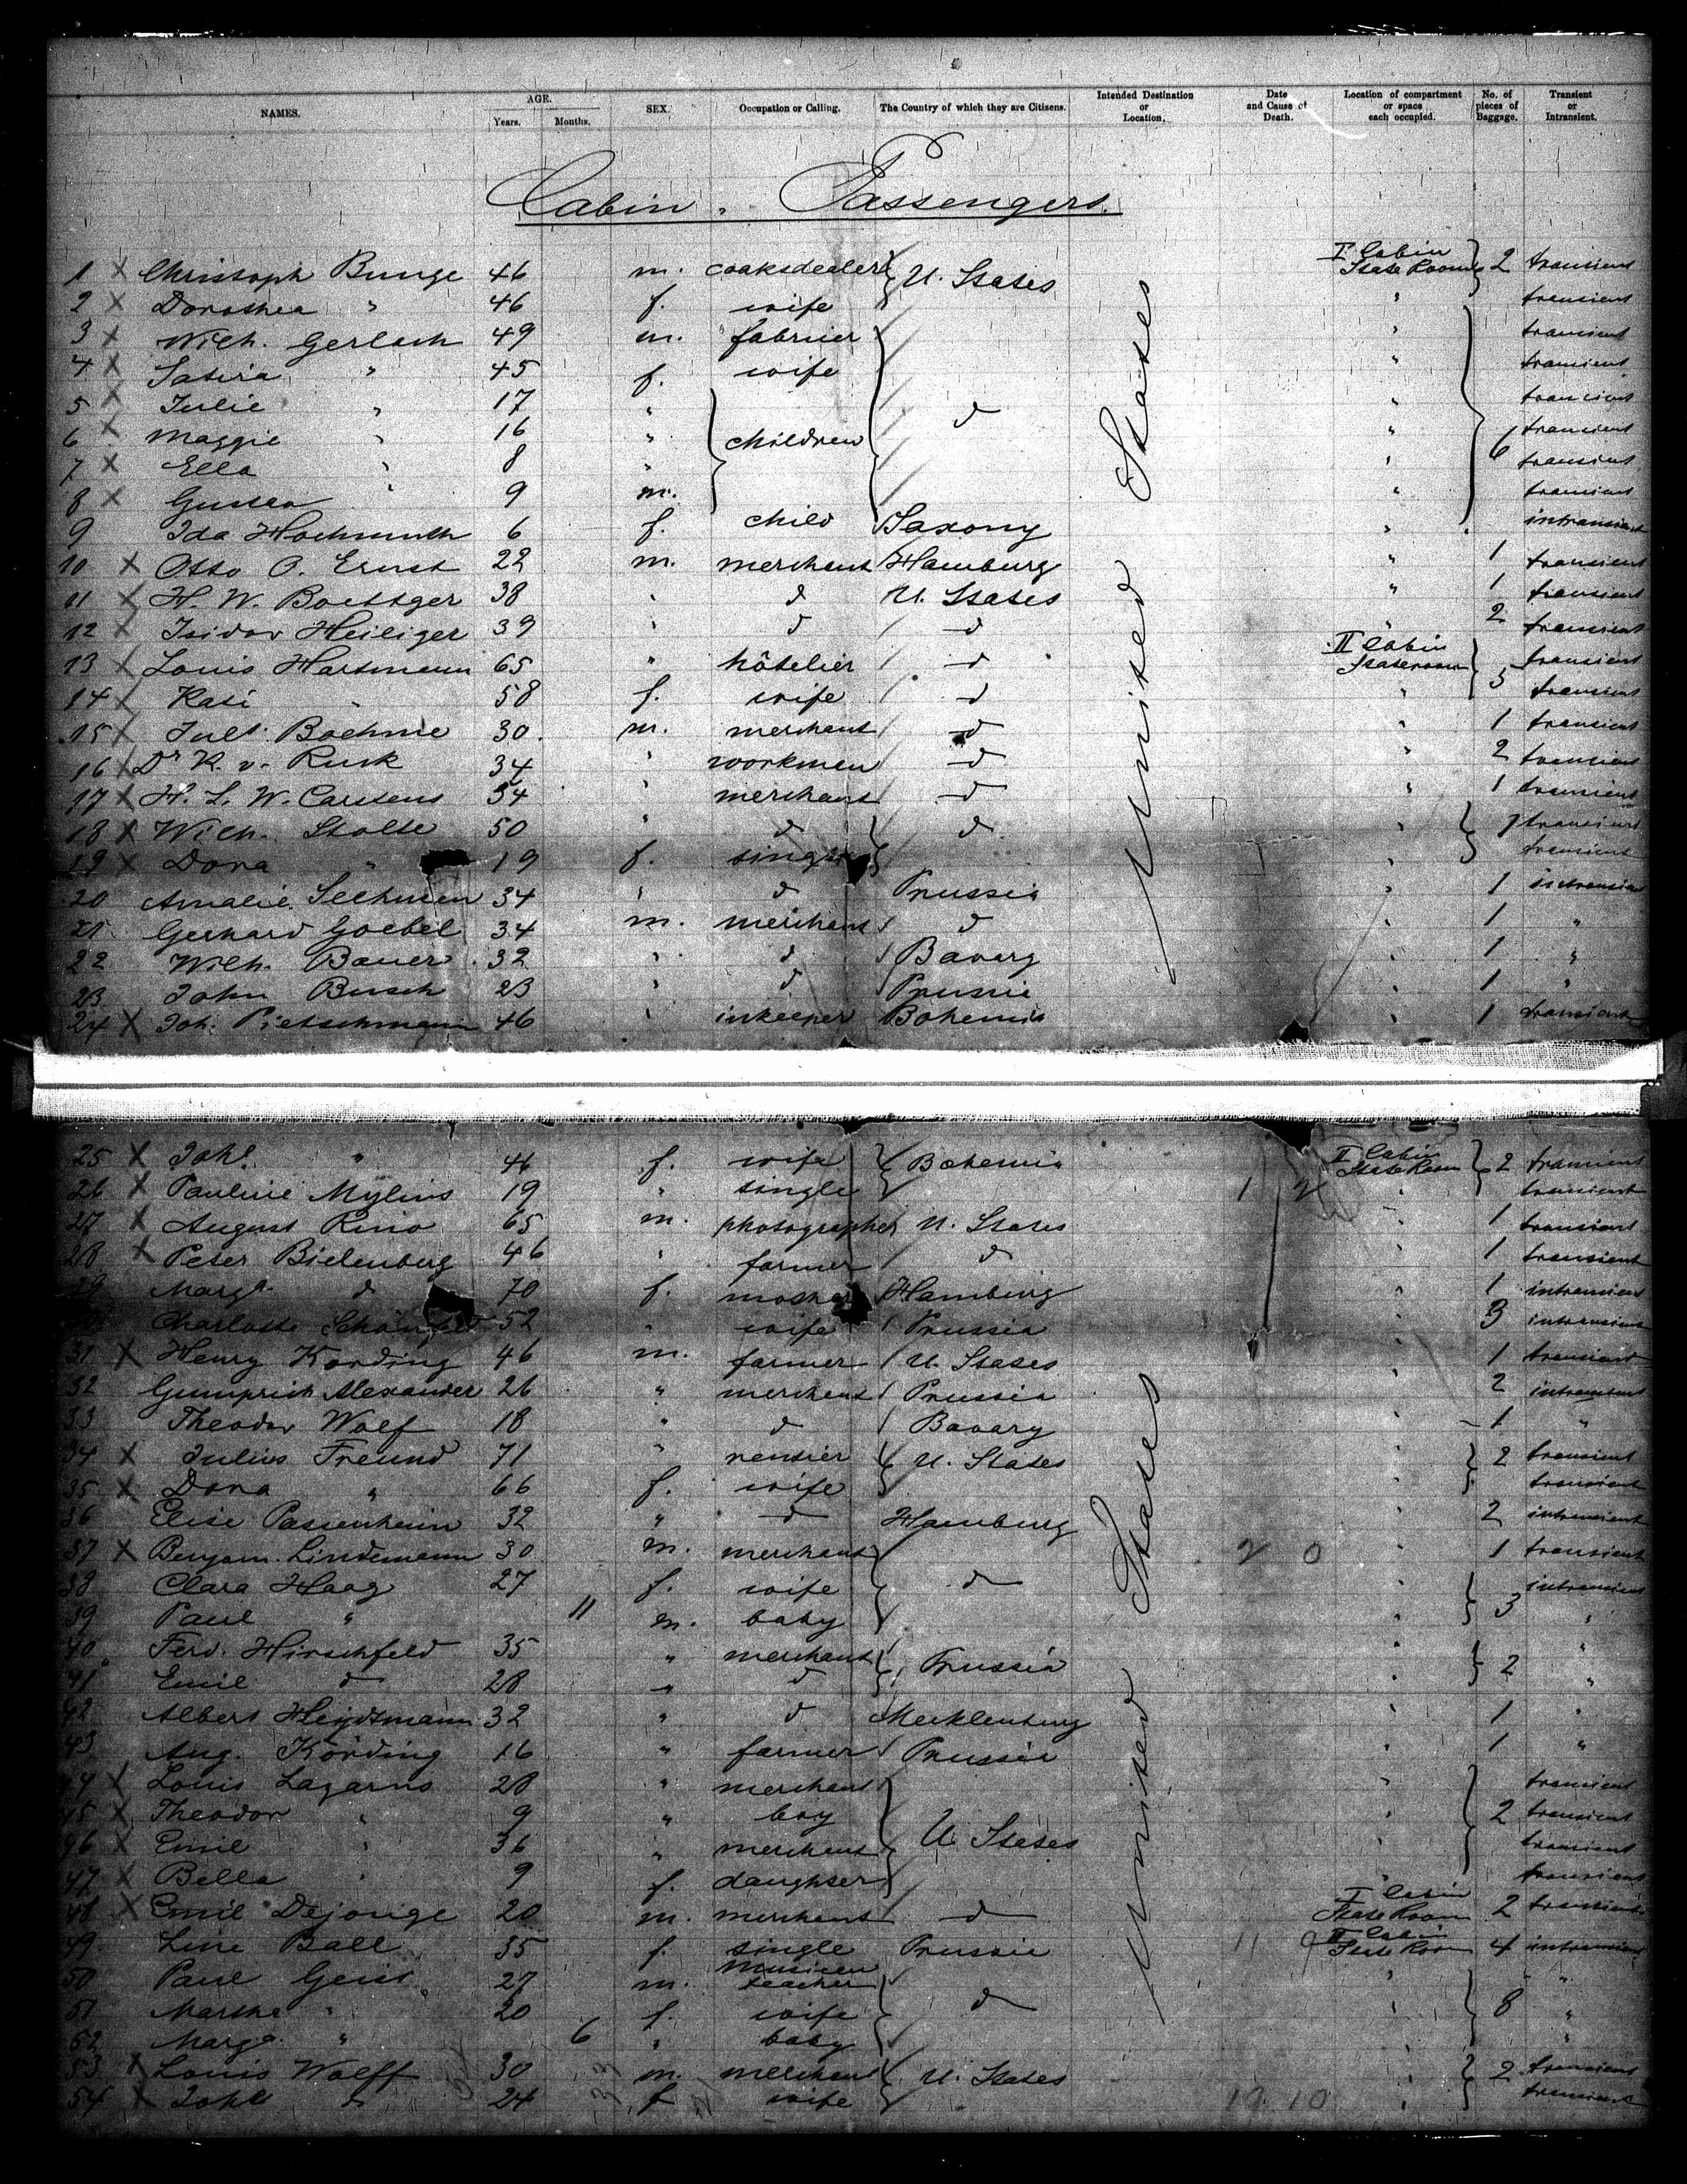 NAMES. AGE. Years. Months. SEX. Occupation or Calling. The Country of which they are Citizens. Intended Destination or Location. Date and Cause of Death. Location of compartment or space each occupied. No. of pieces of Baggage. Transient or Intransient.
Cabin. Passengers.
1 X Christoph Bunge 46 m. coaksdealer U. States I Cabin State Room 2 transient
2 X Dorothea " 46 f. wife " transient
3 X Wilh. Gerlach 49 m. fabrier " transient
4 X " 45 f. wife " transient
5 X Julie " 17 " " transient
6 X Maggie " 16 " children d " 6 transient
7 X Ella " 8 " " transient
8 X Gustav " 9 m. " transient
9 Ida Hochmuth 6 f. child Saxony " intransient
10 X Otto O. Ernst 22 m. merchant Hamburg " 1 transient
11 X H. W. Boettger 38 " d U. States " 1 transient
12 X Isidor Heiliger 39 " d d " 2 transient
13 X Louis Hartmann 65 " hôtelier d II Cabin Stateroom 5 transient
14 X Kati " 58 f. wife d " transient
15 X Juls. Boehme 30 m. merchant d " 1 transient
16 X Dr K. v. Ruck 34 " workmen d " 2 transient
17 X H. L. W. Carstens 34 " merchant d " 1 transient
18 X Wilh. Stolte 50 " d d " 1 transient
19 X Dora " 19 f. single " transient
20 Amalie 34 " d Prussia " 1 intransient
21 Gerhard Goebel 34 m. merchant d " 1 "
22 Wilh. Bauer 32 " d Bavary " 1 "
23 John Busch 23 " d Prussia " 1 "
24 X Joh. Pietschmann 46 " inkeeper Bohemia " 1 transient
United States
25 X Joh. " 46 f. wife Bohemia II Cabin State Room 2 transient
26 X Pauline Mylius 19 " single " transient
27 X August Rino 65 m. photographer U. States " 1 transient
28 X Peter Bielenberg 46 " farmer d " 1 transient
29 Marg. d 70 f. mother Hamburg " 1 intransient
Charlotte 52 " wife Prussia " 3 intransient
31 X Henry Kording 46 m. farmer U. States " 1 transient
32 Gumprich Alexander 26 " merchant Prussia " 2 intransient
33 Theodor Wolf 18 " d Bavary " 1 "
34 X Julius Freund 71 " rentier U. States " 2 transient
35 X Dora " 66 f. wife " transient
36 Elise Passenheim 32 " d Hamburg " 2 intransient
37 X Benjam. Lindemann 30 m. merchant " 1 transient
38 Clara Haag 27 f. wife d " 3 intransient
39 Paul " 11 m. baby " "
40 Ferd. Hirschfeld 35 " merchant Prussia " 2 "
41 Emil d 28 " d "
42 Albert Heydtmann 32 " d Mecklenburg 1 "
43 Aug. Körding 16 " farmer Prussia " 1 "
44 X Louis Lazarus 28 " merchant " transient
45 X Theodor " 9 " boy U. States " 2 transient
46 X Emil " 36 " merchant " transient
47 X Bella " 9 f. daughter " transient
48 X Emil Dejonge 20 m. merchant d I Cabin State Room 2 transient
49 Line Ball 35 f. single Prussia II Cabin State Room 4 intransient
50 Paul Geist 27 m. teacher " "
51 Martha " 20 f. wife d " 8 "
52 Marga. " 6 " baby "
53 X Louis Wolff 30 m. merchant U. States " 2 transient
54 X " 24 f wife " transient
United States